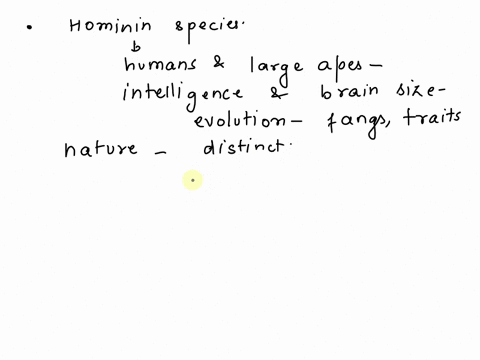 • Hominin species.
↳ humans & large apes -
intelligence & brain size -
evolution - fangs, traits
nature - distinct.